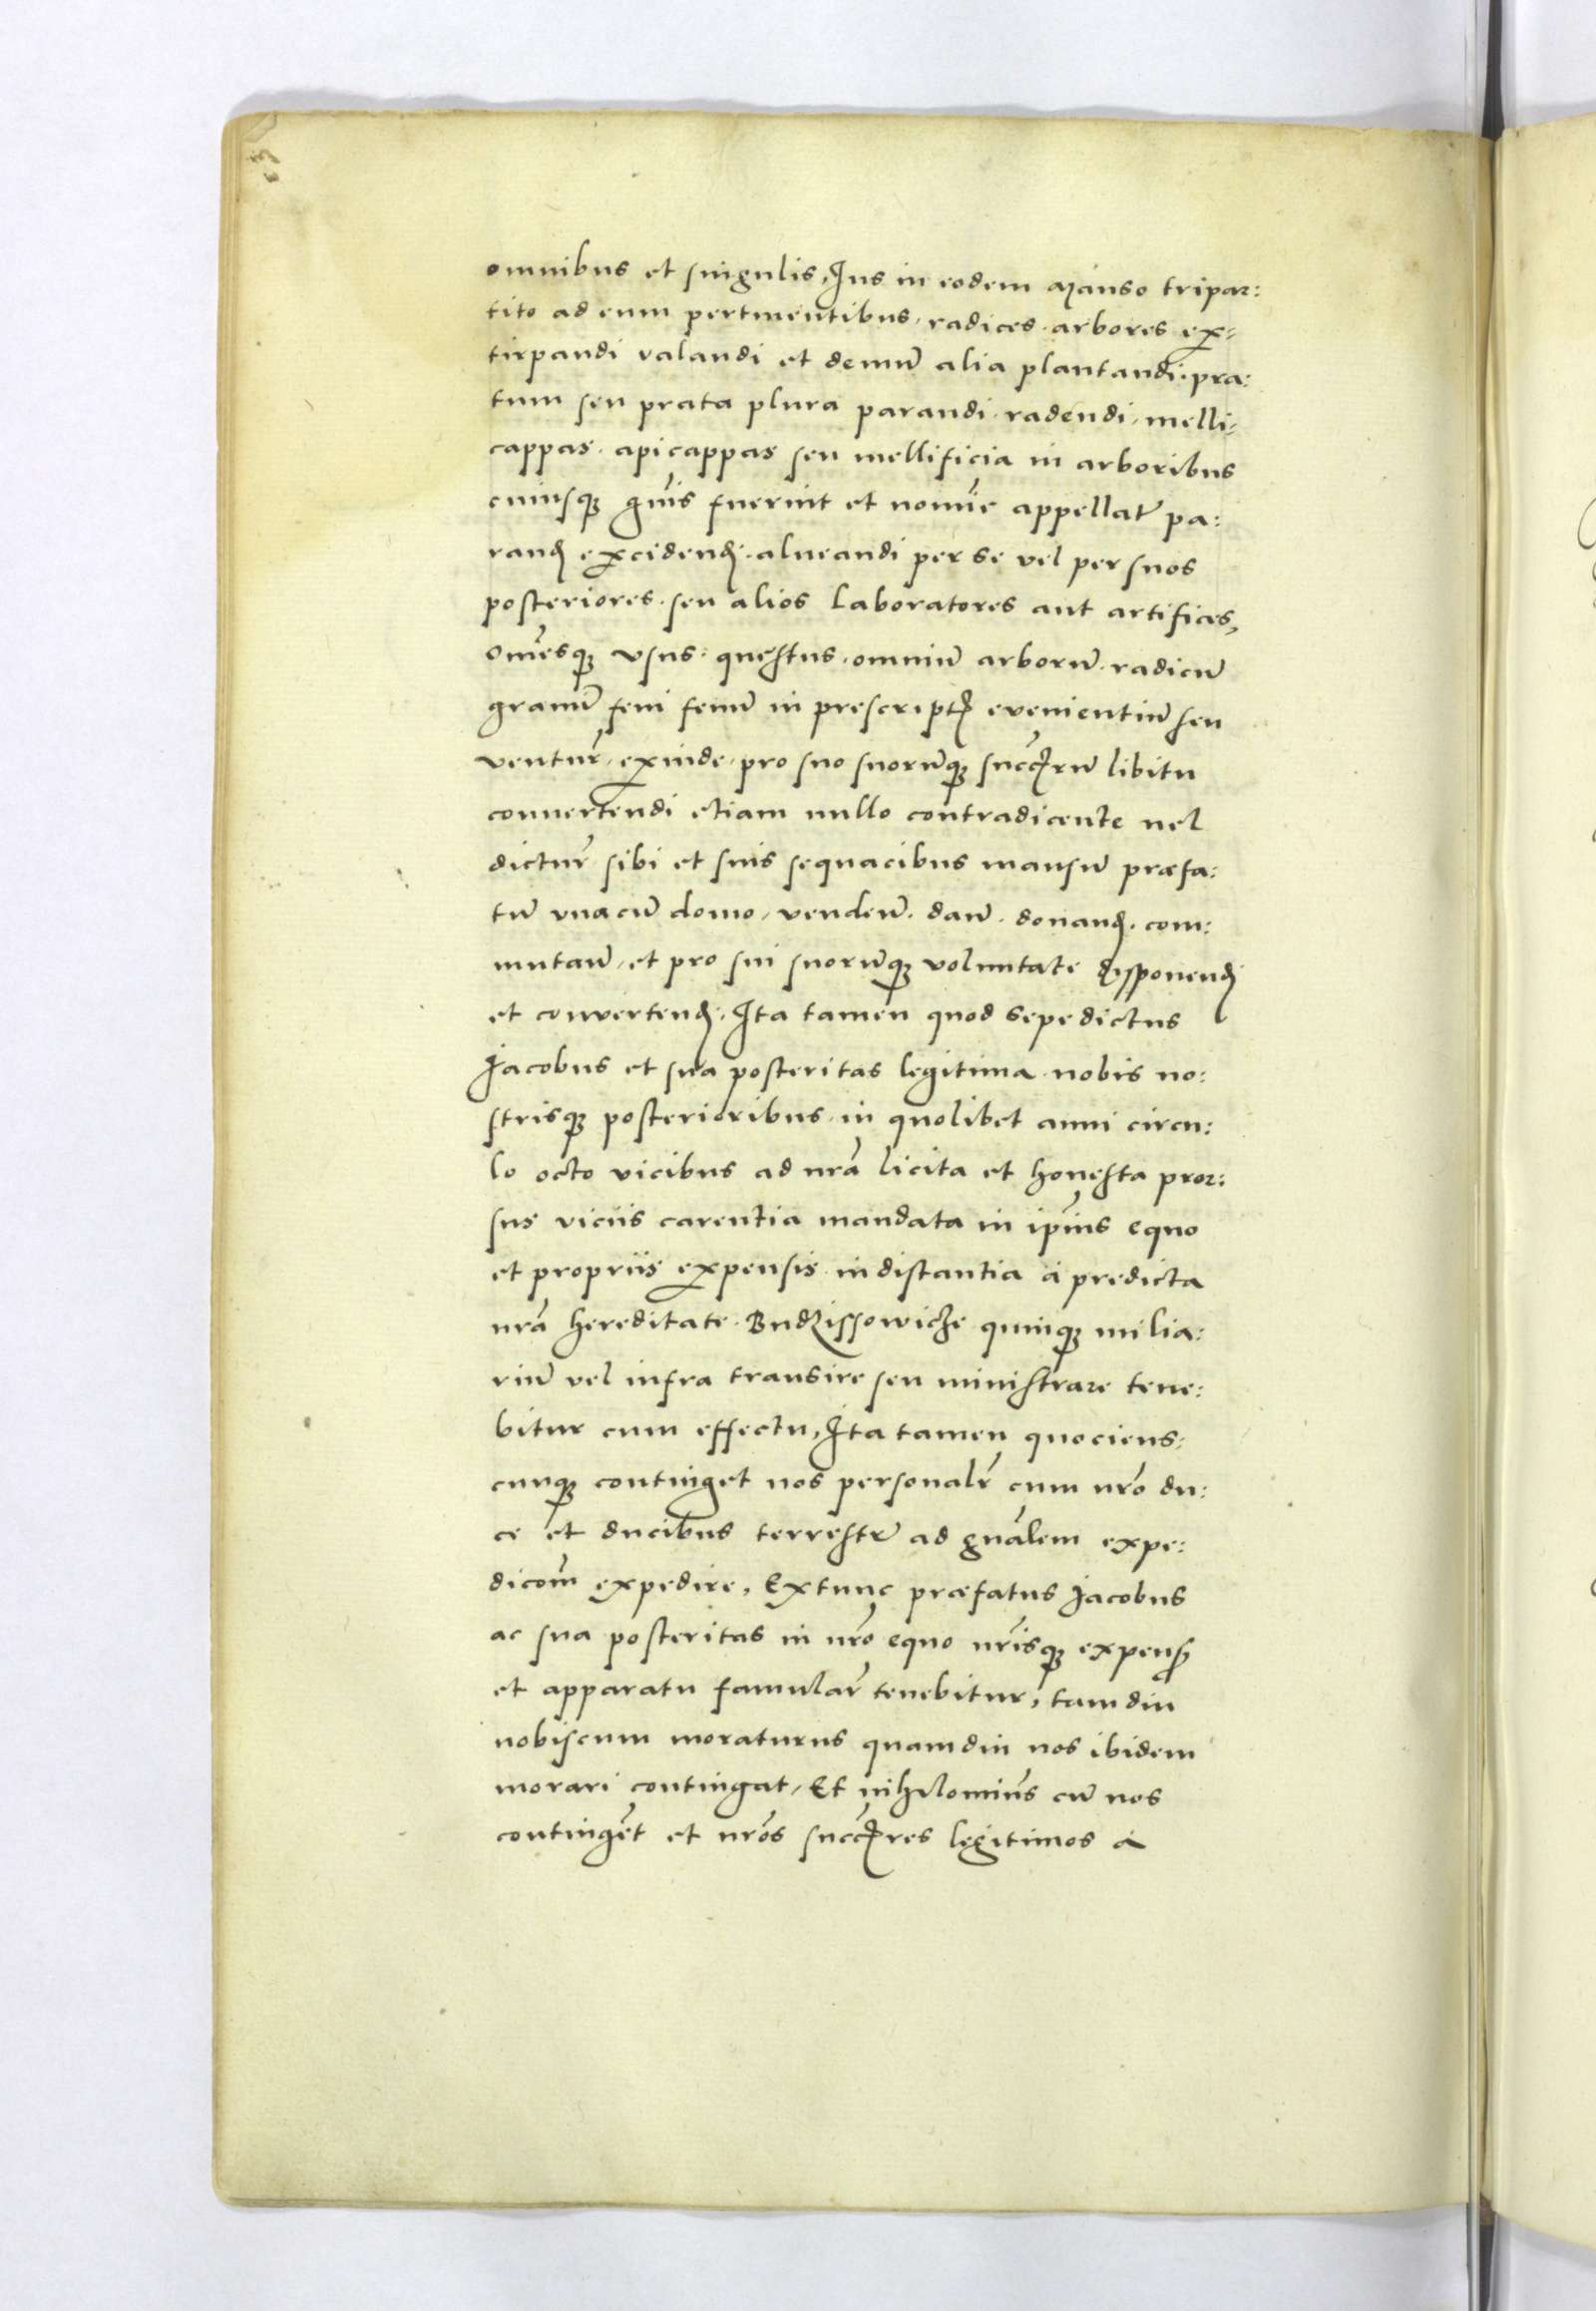 omnibus et singulis, Jus in eodem Manso tripar:
tito ad eum pertinentibus, radices. arbores ex:
tirpandi valandi et demū alia plantandi. pra:
tum seu prata plura parandi. radendi. melli:
cappas. apicappas seu mellificia in arboribus
cuiusqʒ gn̄is fuerint et nomīe appellat̄ pa:
rand̄ excidend̄. alueandi per se vel per suos
posteriores. seu alios laboratores aut artifices,
Om̄esqʒ vsus. questus. omniū arborū. radicū
granū feni fenū in prescript̄ evenientiū seu
ventur̄. exinde. pro suo suorūqʒ succ̄rū libitu
convertendi etiam nullo contradicente vel
dictur̄ sibi et suis sequacibus mansū præfa:
tū vnacū domo, vendeū. daū. donand̄. com:
mutaū, et pro sui suorūqʒ voluntate disponend̄
et convertend̄. Ita tamen quod sepedictus
Jacobus et sua posteritas legitima nobis no:
strisqʒ posterioribus. in quolibet anni circu:
lo octo vicibus ad nr̄a licita et honesta pror:
sus viciis carentia mandata in ip̄ius equo
et propriis expensis in distantia à predicta
nr̄a hereditate. Budzissowicze quinqʒ milia:
riū vel infra transire seu ministrare tene:
bitur cum effectu, Ita tamen quociens:
cunqʒ continget nos personalr̄ cum nr̄o du:
ce et ducibus terrestr̄ ad gn̄alem expe:
dicōm expedire, Extunc præfatus Jacobus
ac sua posteritas in nr̄o equo nr̄isqʒ expens̄
et apparatu famular̄ tenebitur, tamdiu
nobiscum moraturus quamdiu nos ibidem
morari contingat, Et nihilomin̄s cū nos
continḡet et nr̄os succ̄res legitimos à